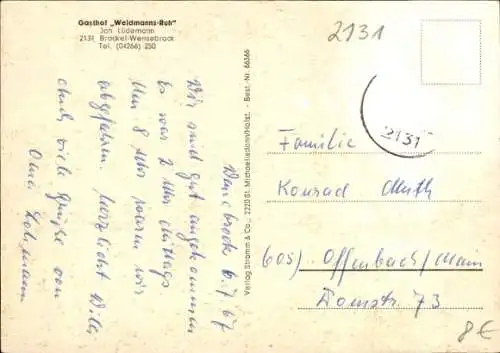 Gasthof „Weidmanns-Ruh"
Jan Lüdemann
2131, Brockel-Wensebrock
Tel. (04266) 250
6.7.67
Wir sind gut angekommen
Es war 2 Uhr mittags
Um 8 Uhr waren wir
abgefahren. Herzlichst
Euch viele Grüße von
Oma
Verlag Stramm & Co., 2220 St. Michaelisdonn/Holst. - Best.-Nr. 66366
2131
2131
Familie
Konrad Muth
605) Offenbach/Main
Domstr. 73
8€